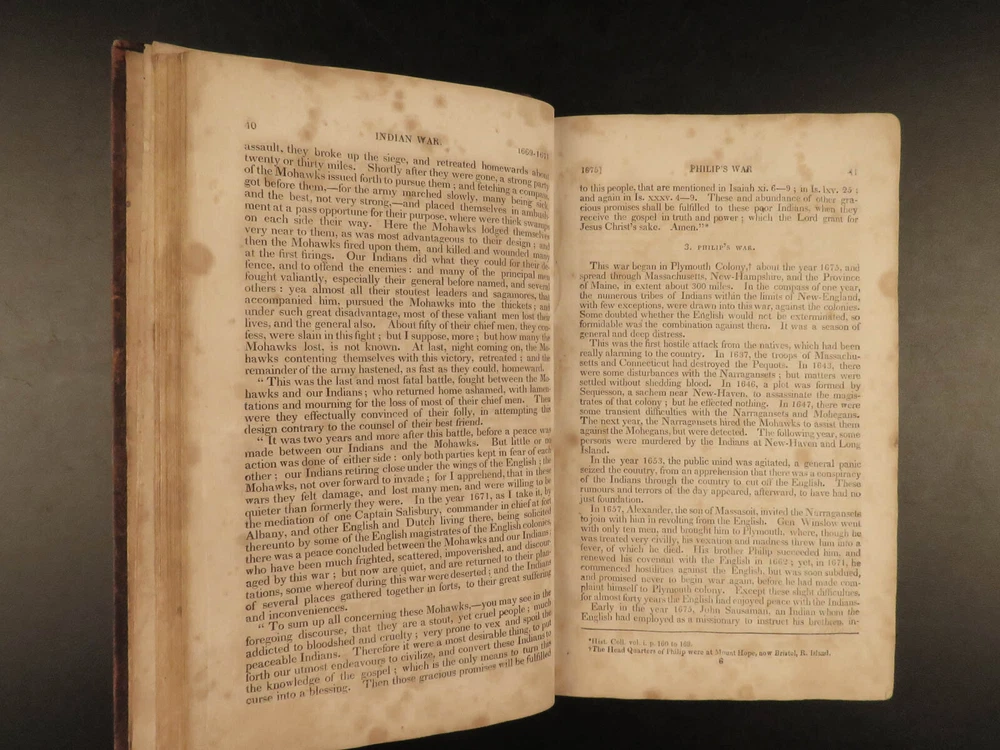 40
INDIAN WAR.
1669-1671
assault, they broke up the siege, and retreated homewards about
twenty or thirty miles. Shortly after they were gone, a strong party
of the Mohawks issued forth to pursue them; and fetching a compass,
got before them,—for the army marched slowly, many being sick,
and the best, not very strong,—and placed themselves in ambush-
ment at a pass opportune for their purpose, where were thick swamps
on each side their way. Here the Mohawks lodged themselves
very near to them, as was most advantageous to their design; and
then the Mohawks fired upon them, and killed and wounded many
at the first firings. Our Indians did what they could for their de-
fence, and to offend the enemies: and many of the principal men
fought valiantly, especially their general before named, and several
others: yea almost all their stoutest leaders and sagamores, that
accompanied him, pursued the Mohawks into the thickets; and
under such great disadvantage, most of these valiant men lost their
lives, and the general also. About fifty of their chief men, they con-
fess, were slain in this fight; but I suppose, more; but how many the
Mohawks lost, is not known. At last, night coming on, the Mo-
hawks contenting themselves with this victory, retreated; and the
remainder of the army hastened, as fast as they could, homeward.
"This was the last and most fatal battle, fought between the Mo-
hawks and our Indians; who returned home ashamed, with lamen-
tations and mourning for the loss of most of their chief men. Then
were they effectually convinced of their folly, in attempting this
design contrary to the counsel of their best friend.
"It was two years and more after this battle, before a peace was
made between our Indians and the Mohawks. But little or no
action was done of either side: only both parties kept in fear of each
other; our Indians retiring close under the wings of the English; the
Mohawks, not over forward to invade; for I apprehend, that in these
wars they felt damage, and lost many men, and were willing to be
quieter than formerly they were. In the year 1671, as I take it, by
the mediation of one Captain Salisbury, commander in chief at fort
Albany, and other English and Dutch living there, being solicited
thereunto by some of the English magistrates of the English colonies,
there was a peace concluded between the Mohawks and our Indians;
who have been much frighted, scattered, impoverished, and discour-
aged by this war; but now are quiet, and are returned to their plan-
tations, some whereof during this war were deserted; and the Indians
of several places gathered together in forts, to their great suffering
and inconveniences.
"To sum up all concerning these Mohawks,—you may see in the
foregoing discourse, that they are a stout, yet cruel people; much
addicted to bloodshed and cruelty; very prone to vex and spoil the
peaceable Indians. Therefore it were a most desirable thing, to put
forth our utmost endeavours to civilize, and convert these Indians to
the knowledge of the gospel; which is the only means to turn this
curse into a blessing. Then those gracious promises will be fulfilled
1675]
PHILIP'S WAR
41
to this people, that are mentioned in Isaiah xi. 6—9; in Is. lxv. 25;
and again in Is. xxxv. 4—9. These and abundance of other gra-
cious promises shall be fulfilled to these poor Indians, when they
receive the gospel in truth and power; which the Lord grant for
Jesus Christ's sake. Amen."*
3. PHILIP'S WAR.
This war began in Plymouth Colony,† about the year 1675, and
spread through Massachusetts, New-Hampshire, and the Province
of Maine, in extent about 300 miles. In the compass of one year,
the numerous tribes of Indians within the limits of New-England,
with few exceptions, were drawn into this war, against the colonies.
Some doubted whether the English would not be exterminated, so
formidable was the combination against them. It was a season of
general and deep distress.
This was the first hostile attack from the natives, which had been
really alarming to the country. In 1637, the troops of Massachu-
setts and Connecticut had destroyed the Pequots. In 1643, there
were some disturbances with the Narragansets; but matters were
settled without shedding blood. In 1646, a plot was formed by
Sequesson, a sachem near New-Haven, to assassinate the magis-
trates of that colony; but he effected nothing. In 1647, there were
some transient difficulties with the Narragansets and Mohegans.
The next year, the Narragansets hired the Mohawks to assist them
against the Mohegans, but were detected. The following year, some
persons were murdered by the Indians at New-Haven and Long
Island.
In the year 1653, the public mind was agitated, a general panic
seized the country, from an apprehension that there was a conspiracy
of the Indians through the country to cut off the English. These
rumours and terrors of the day appeared, afterward, to have had no
just foundation.
In 1657, Alexander, the son of Massasoit, invited the Narragansets
to join with him in revolting from the English. Gen Winslow went
with only ten men, and brought him to Plymouth, where, though he
was treated very civilly, his vexation and madness threw him into a
fever, of which he died. His brother Philip succeeded him, and
renewed his covenant with the English in 1662; yet, in 1671, he
commenced hostilities against the English, but was soon subdued,
and promised never to begin war again, before he had made com-
plaint himself to Plymouth colony. Except these slight difficulties,
for almost forty years the English had enjoyed peace with the Indians.
Early in the year 1675, John Sausaman, an Indian whom the
English had employed as a missionary to instruct his brethren in-
*Hist. Coll. vol. i. p. 160 to 168.
†The Head Quarters of Philip were at Mount Hope, now Bristol, R. Island.
6